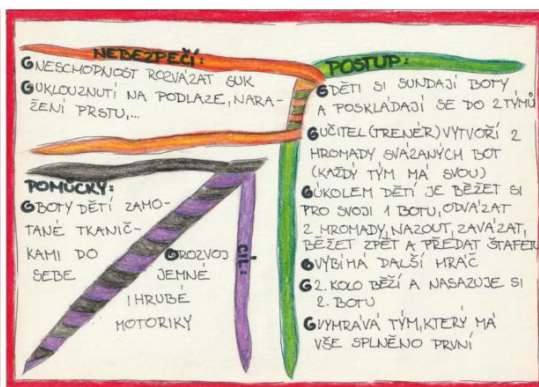 NEBEZPEČÍ:
NESCHOPNOST ROZVÁZAT SUK
UKLOUZNUTÍ NA PODLAZE, NARA-
ŽENÍ PRSTU,...
POMŮCKY:
BOTY DĚTÍ ZAMO-
TANÉ TKANIČ-
KAMI DO
SEBE
CÍL:
ROZVOJ
JEMNÉ
I HRUBÉ
MOTORIKY
POSTUP:
DĚTI SI SUNDAJÍ BOTY
A POSKLÁDAJÍ SE DO 2 TÝMŮ
UČITEL (TRENÉR) VYTVOŘÍ 2
HROMADY SVÁZANÝCH BOT
(KAŽDÝ TÝM MÁ SVOU)
ÚKOLEM DĚTÍ JE BĚŽET SI
PRO SVOJI 1 BOTU, ODVÁZAT
Z HROMADY, NAZOUT, ZAVÁZAT,
BĚŽET ZPĚT A PŘEDAT ŠTAFETU
VYBÍHÁ DALŠÍ HRÁČ
2. KOLO BĚŽÍ A NASAZUJE SI
2. BOTU
VYHRÁVÁ TÝM, KTERÝ MÁ
VŠE SPLNĚNO PRVNÍ